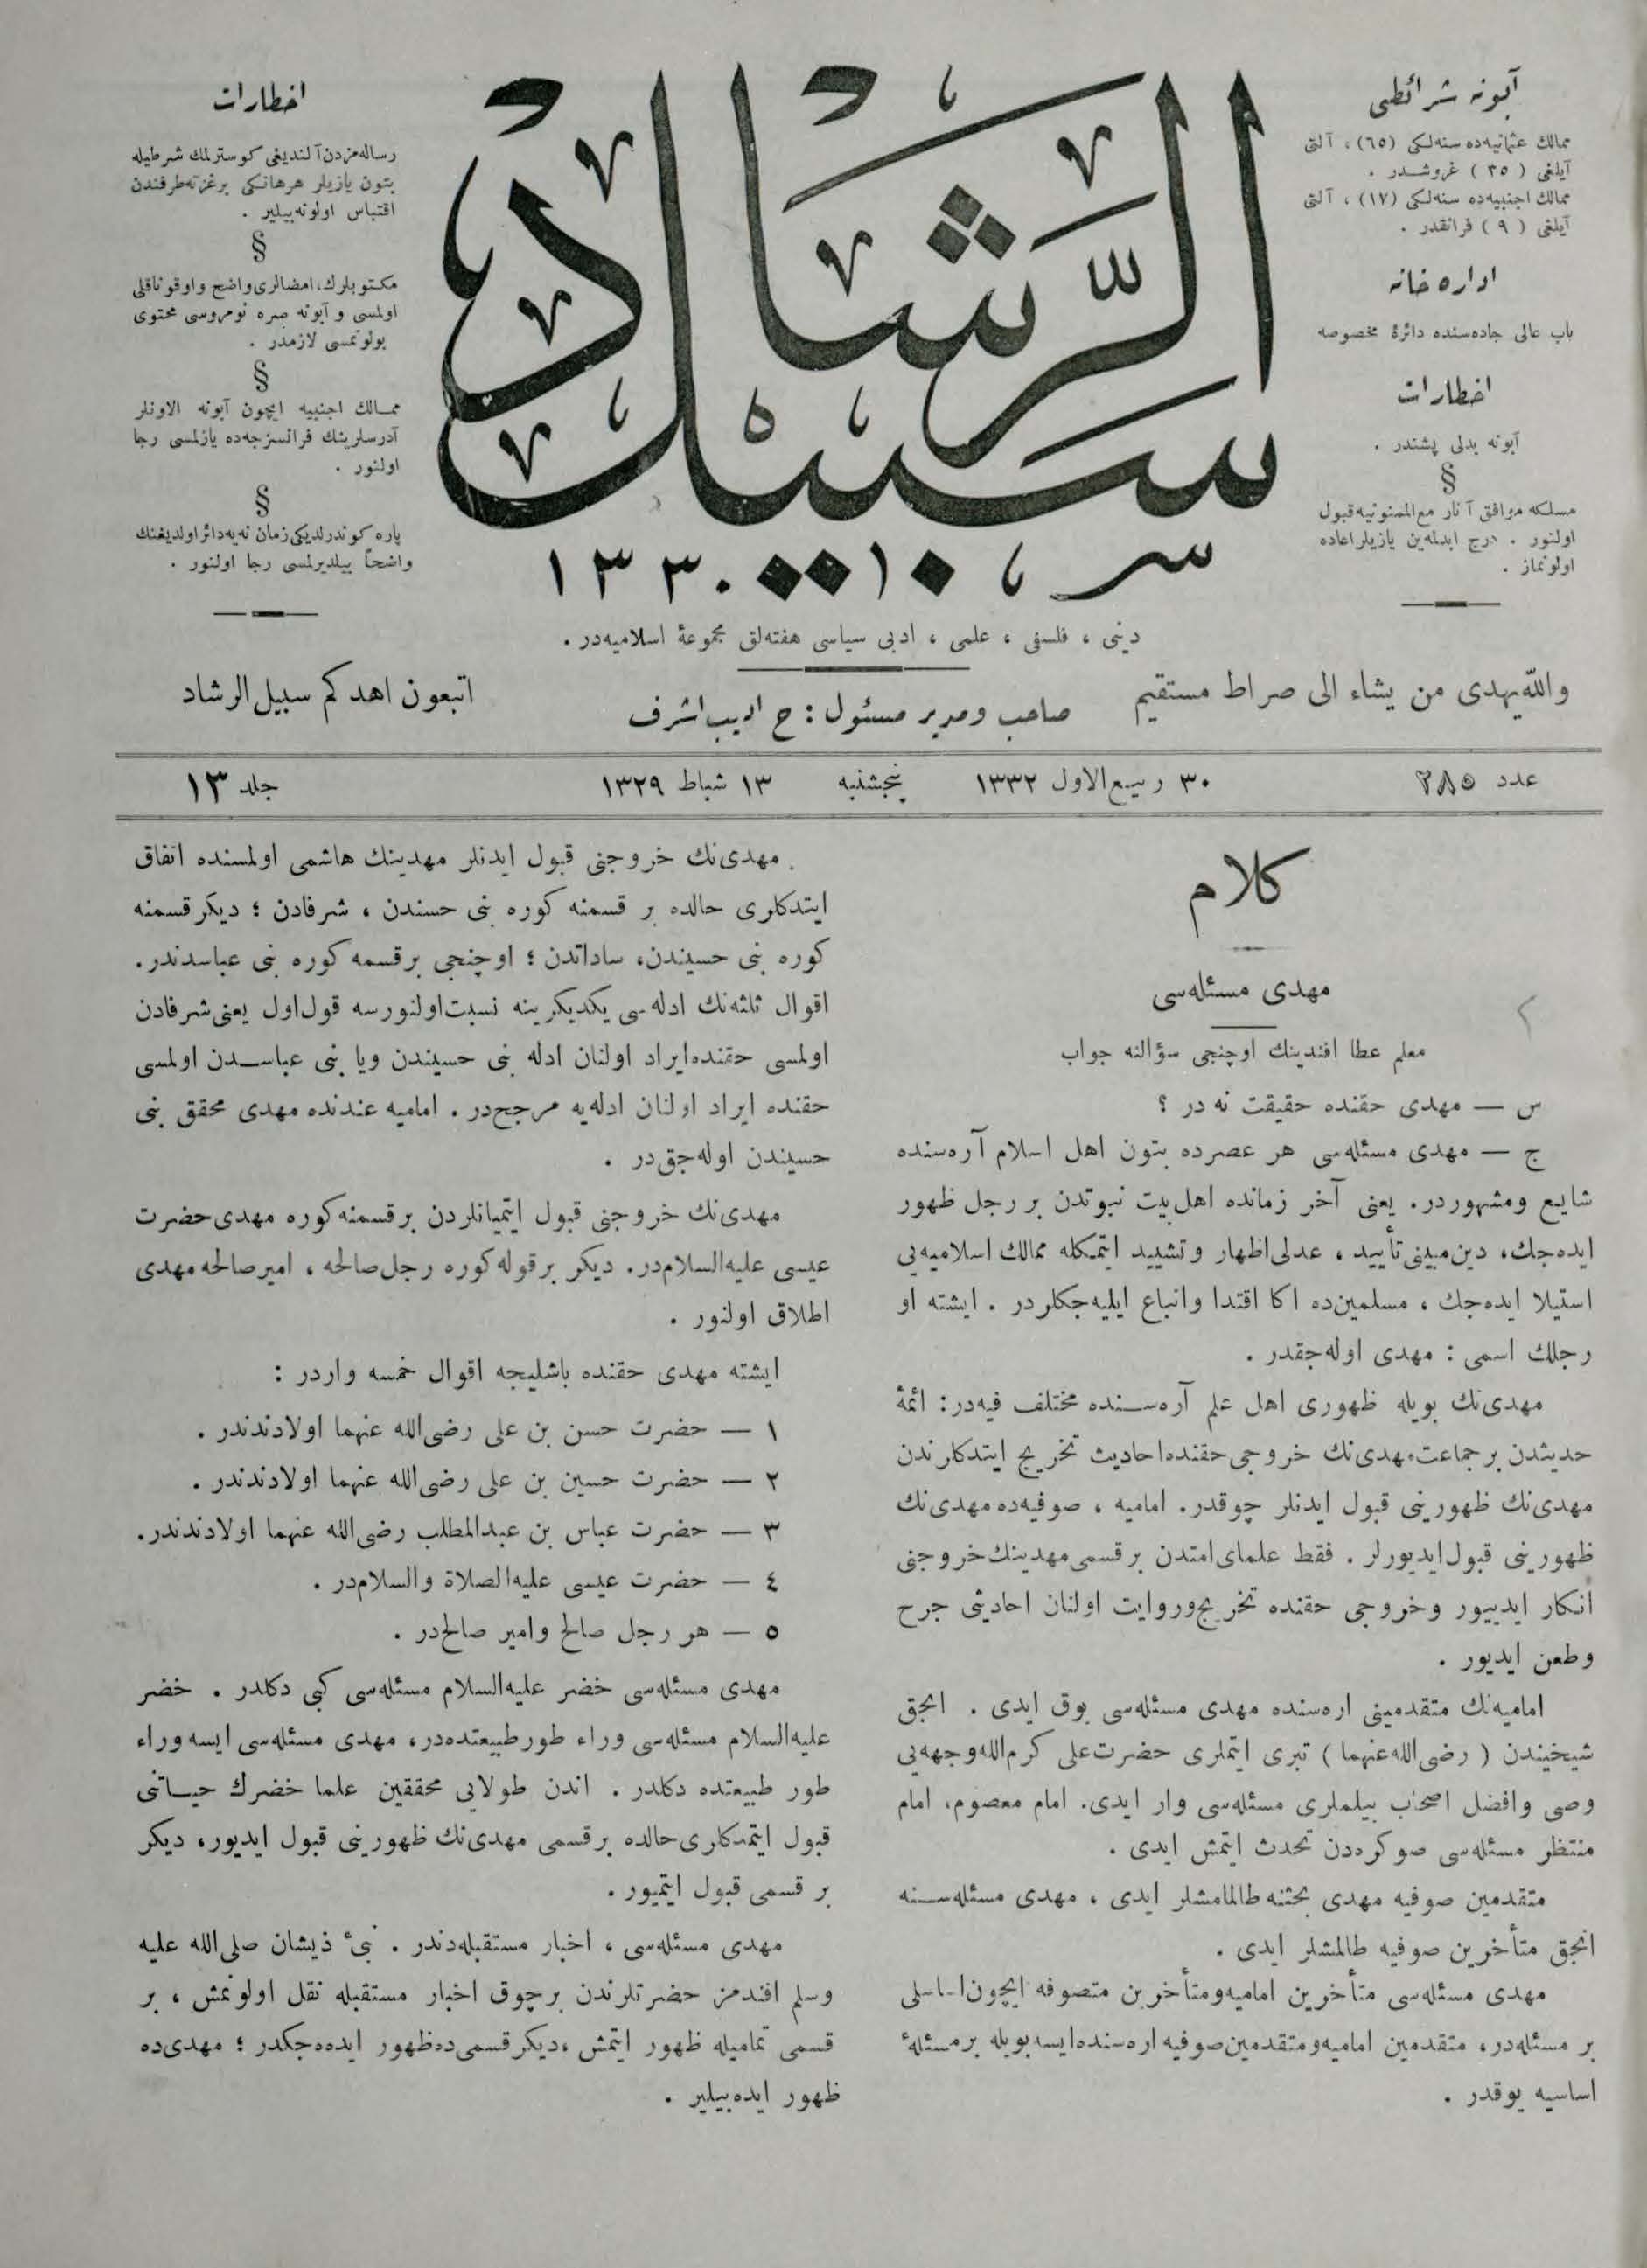 آبونه شرائطی
ممالك عثمانیه‌ده سنه‌لكی (٦٥) ، آلتی
آیلغی ( ٣٥ ) غروشدر .
ممالك اجنبیه‌ده سنه‌لكی (١٧) ، آلتی
آیلغی ( ٩ ) فرانقدر .
اداره خانه
باب عالی جاده‌سنده دائرهٔ مخصوصه
اخطارات
آبونه بدلی پشندر .
§
مسلكه موافق آثار مع‌الممنونیه قبول
اولنور . درج ایدلمه‌ین یازیلر اعاده
اولونماز .
سبیل الرشاد
١٣٣٠
اخطارات
رساله‌مزدن آلندیغی كوسترلمك شرطیله
بتون یازیلر هرهانكی برغزته طرفندن
اقتباس اولونه‌بیلیر .
§
مكتوبلرك، امضالری واضح و اوقوناقلی
اولمسی و آبونه صره نومروسی محتوی
بولونمسی لازمدر .
§
ممالك اجنبیه ایچون آبونه الاونلر
آدرسلرینك فرانسزجه‌ده یازلمسی رجا
اولنور .
§
پاره كوندرلدیكی زمان نه‌یه دائر اولدیغنك
واضحاً بیلدیرلمسی رجا اولنور .
دینی ، فلسفی ، علمی ، ادبی سیاسی هفته‌لق مجموعهٔ اسلامیه‌در .
والله یهدی من یشاء الی صراط مستقیم
صاحب ومدیر مسئول : ح اديب اشرف
اتبعون اهدكم سبیل الرشاد
عدد ٢٨٥
٣٠ ربیع الاول ١٣٣٢
پنجشنبه
١٣ شباط ١٣٢٩
جلد ١٣
كلام
مهدی مسئله‌سی
معلم عطا افندینك اوچنجی سؤالنه جواب
س — مهدی حقنده حقیقت نه در ؟
ج — مهدی مسئله‌سی هر عصرده بتون اهل اسلام آره‌سنده
شایع ومشهوردر. یعنی آخر زمانده اهل بیت نبوتدن بر رجل ظهور
ایده‌جك، دین مبینی تأیید ، عدلی اظهار وتشیید ایتمكله ممالك اسلامیه‌یی
استیلا ایده‌جك ، مسلمین‌ده اكا اقتدا واتباع ایلیه‌جكلردر . ایشته او
رجلك اسمی : مهدی اوله‌جقدر .
مهدی‌نك بویله ظهوری اهل علم آره‌سنده مختلف فیه‌در: ائمهٔ
حدیثدن برجماعت مهدی‌نك خروجی حقنده احادیث تخریج ایتدكلرندن
مهدی‌نك ظهورینی قبول ایدنلر چوقدر. امامیه ، صوفیه‌ده مهدی‌نك
ظهورینی قبول ایدیورلر . فقط علمای امتدن برقسمی مهدینك خروجنی
انكار ایدییور وخروجی حقنده تخریج وروایت اولنان احادیثی جرح
وطعن ایدیور .
امامیه‌نك متقدمینی اره‌سنده مهدی مسئله‌سی یوق ایدی . انجق
شیخیندن ( رضی الله عنهما ) تبری ایتملری حضرت علی كرم الله وجهه‌یی
وصی وافضل اصحاب بیلملری مسئله‌سی وار ایدی. امام معصوم، امام
منتظر مسئله‌سی صوكره‌دن تحدث ایتمش ایدی .
متقدمین صوفیه مهدی بحثنه طالمامشلر ایدی ، مهدی مسئله‌سنه
انجق متأخرین صوفیه طالمشلر ایدی .
مهدی مسئله‌سی متأخرین امامیه ومتأخرین متصوفه ایچون اساسلی
بر مسئله‌در، متقدمین امامیه ومتقدمین صوفیه اره‌سنده ایسه بویله برمسئلهٔ
اساسیه یوقدر .
مهدی‌نك خروجنی قبول ایدنلر مهدینك هاشمی اولمسنده اتفاق
ایتدكلری حالده بر قسمنه كوره بنی حسندن ، شرفادن ؛ دیكر قسمنه
كوره بنی حسیندن، ساداتدن ؛ اوچنجی برقسمه كوره بنی عباسدندر.
اقوال ثلثه‌نك ادله‌سی یكدیكرینه نسبت اولنورسه قول اول یعنی شرفادن
اولمسی حقنده ایراد اولنان ادله بنی حسیندن ویا بنی عباسدن اولمسی
حقنده ایراد اولنان ادله‌یه مرجح‌در . امامیه عندنده مهدی محقق بنی
حسیندن اوله‌جق‌در .
مهدی‌نك خروجنی قبول ایتمیانلردن برقسمنه كوره مهدی حضرت
عیسی علیه السلام‌در. دیكر برقوله كوره رجل صالحه ، امیر صالحه مهدی
اطلاق اولنور .
ایشته مهدی حقنده باشلیجه اقوال خمسه واردر :
١ — حضرت حسن بن علی رضی الله عنهما اولادندندر .
٢ — حضرت حسین بن علی رضی الله عنهما اولادندندر .
٣ — حضرت عباس بن عبدالمطلب رضی الله عنهما اولادندندر.
٤ — حضرت عیسی علیه الصلاة والسلام‌در .
٥ — هر رجل صالح وامیر صالح‌در .
مهدی مسئله‌سی خضر علیه السلام مسئله‌سی كبی دكلدر . خضر
علیه السلام مسئله‌سی وراء طور طبیعتده‌در، مهدی مسئله‌سی ایسه وراء
طور طبیعتده دكلدر . اندن طولایی محققین علما خضرك حیاتنی
قبول ایتمدكلری حالده برقسمی مهدی‌نك ظهورینی قبول ایدیور، دیكر
بر قسمی قبول ایتمیور .
مهدی مسئله‌سی ، اخبار مستقبله‌دندر . نبیٔ ذیشان صلی الله علیه
وسلم افندمز حضرتلرندن برچوق اخبار مستقبله نقل اولونمش ، بر
قسمی تمامیله ظهور ایتمش ، دیكر قسمی ده ظهور ایده‌جكدر ؛ مهدی‌ده
ظهور ایده‌بیلیر .